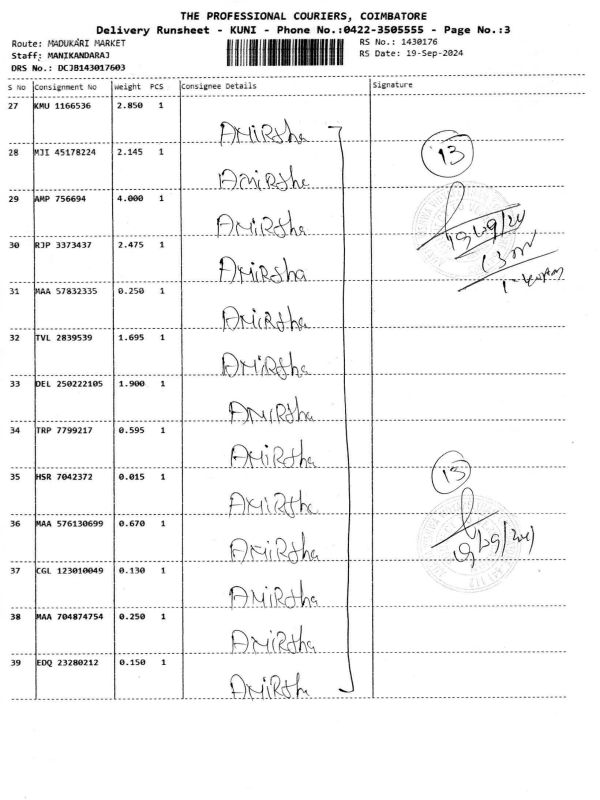 THE PROFESSIONAL COURIERS, COIMBATORE
Delivery Runsheet - KUNI - Phone No.:0422-3505555 - Page No.:3
Route: MADUKARI MARKET
RS No.: 1430176
Staff: MANIKANDARAJ
RS Date: 19-Sep-2024
DRS No.: DCJB143017603
S No Consignment No Weight PCS Consignee Details Signature
27 KMU 1166536 2.850 1
AMIRtha
28 MJI 45178224 2.145 1
13
AMIRtha
29 AMP 756694 4.000 1
AMIRtha
19/09/24
30 RJP 3373437 2.475 1
AMIRtha
31 MAA 57832335 0.250 1
AMIRtha
32 TVL 2839539 1.695 1
AMIRtha
33 DEL 250222105 1.900 1
AMIRtha
34 TRP 7799217 0.595 1
AMIRtha
35 HSR 7042372 0.015 1
13
AMIRtha
36 MAA 576130699 0.670 1
AMIRtha
37 CGL 123010049 0.130 1
AMIRtha
38 MAA 704874754 0.250 1
AMIRtha
39 EDQ 23280212 0.150 1
AMIRtha